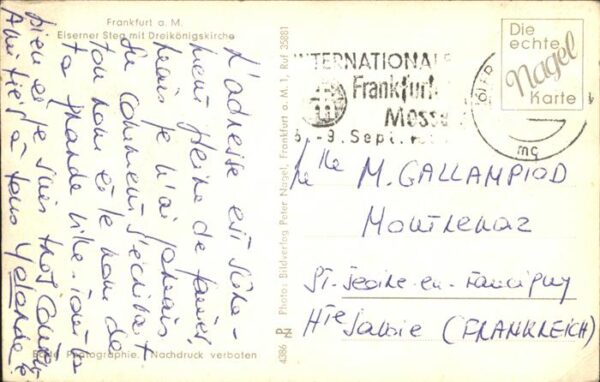 Frankfurt a. M.
Eiserner Steg mit Dreikönigskirche
L'adresse est sûre-
ment pleine de fautes,
mais je n'ai jamais
su comment s'écrivait
ton nom et le nom de
ta grande ville. Tout va
bien et je suis très contente
Amitiés à tous Yolande
Photographie. Nachdruck verboten
4386 Photo: Bildverlag Peter Nagel, Frankfurt a. M. 1, Ruf 35881
INTERNATIONALE
Frankfurt
Messe
-9. Sept.
mç
Die
echte
Nagel
Karte
Mlle M. GALLAMPIOD
Monthenaz
St-Jeoire-en-Faucigny
Hte Savoie (FRANKREICH)